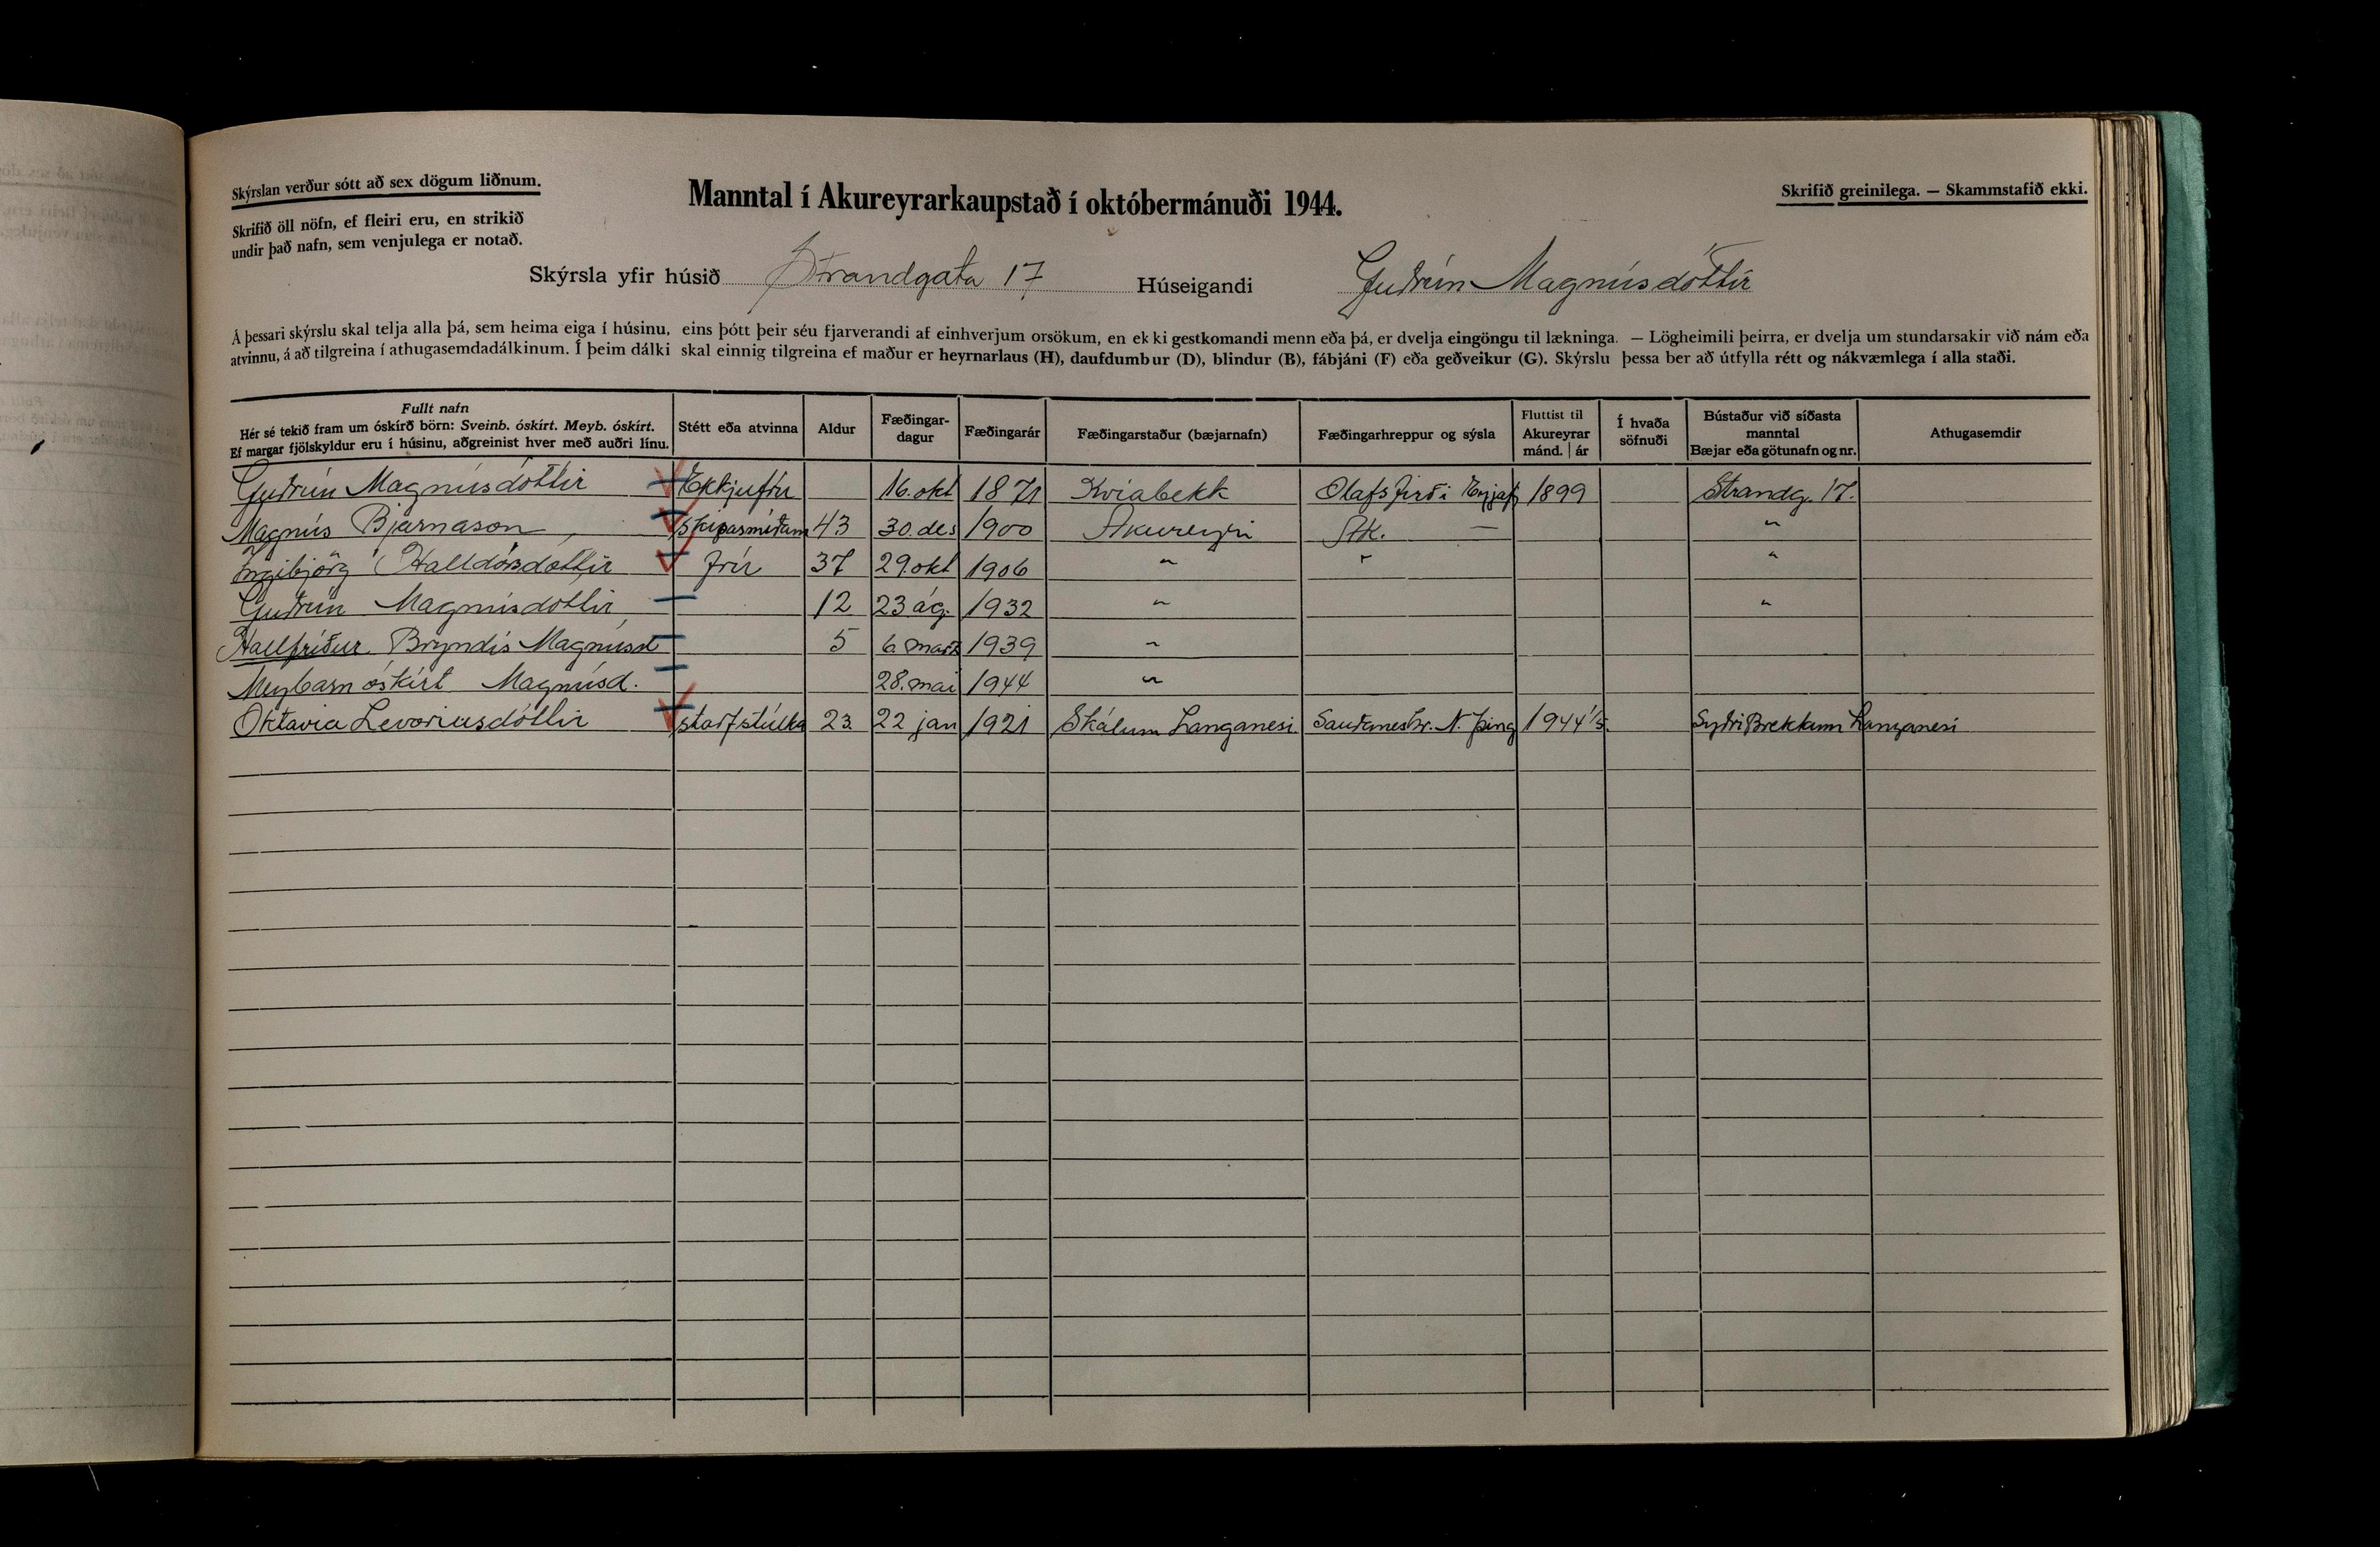 Skýrslan verður sótt að sex dögum liðnum.
Skrifið öll nöfn, ef fleiri eru, en strikið
undir það nafn, sem venjulega er notað.
Manntal í Akureyrarkaupstað í októbermánuði 1944.
Skrifið greinilega. — Skammstafið ekki.
Skýrsla yfir húsið Strandgata 17 Húseigandi Guðrún Magnúsdóttir
Á þessari skýrslu skal telja alla þá, sem heima eiga í húsinu, eins þótt þeir séu fjarverandi af einhverjum orsökum, en ekki gestkomandi menn eða þá, er dvelja eingöngu til lækninga. — Lögheimili þeirra, er dvelja um stundarsakir við nám eða
atvinnu, á að tilgreina í athugasemdadálkinum. Í þeim dálki skal einnig tilgreina ef maður er heyrnarlaus (H), daufdumbur (D), blindur (B), fábjáni (F) eða geðveikur (G). Skýrslu þessa ber að útfylla rétt og nákvæmlega í alla staði.
Fullt nafn
Hér sé tekið fram um óskírð börn: Sveinb. óskírt. Meyb. óskírt.
Ef margar fjölskyldur eru í húsinu, aðgreinist hver með auðri línu.
Stétt eða atvinna
Aldur
Fæðingar-
dagur
Fæðingarár
Fæðingarstaður (bæjarnafn)
Fæðingarhreppur og sýsla
Fluttist til
Akureyrar
mánd. | ár
Í hvaða
söfnuði
Bústaður við síðasta
manntal
Bæjar eða götunafn og nr.
Athugasemdir
Guðrún Magnúsdóttir Ekkjufrú 16. okt 1871 Kviabekk Olafsfirði Eyjaf 1899 Strandg. 17.
Magnús Bjarnason skipasmíðam 43 30. des 1900 Akureyri Ak. — "
Ingibjörg Halldórsdóttir frú 37 29. okt 1906 " " "
Guðrún Magnúsdóttir 12 23 ág. 1932 " "
Hallfríður Bryndís Magnúsd 5 6. marz 1939 "
Meybarn óskírt Magnúsd. 28. mai 1944 "
Oktavia Levoriusdóttir starfstúlka 23. 22 jan 1921 Skálum Langanesi. Sauðaneshr. N. þing 1944 1/5. Syðri Brekkum Langanesi